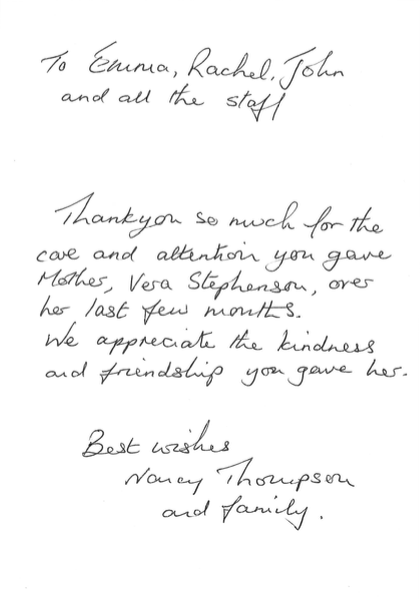 To Emma, Rachel, John
and all the staff
Thankyou so much for the
care and attention you gave
Mother, Vera Stephenson, over
her last few months.
We appreciate the kindness
and friendship you gave her.
Best wishes
Nancy Thompson
and family.